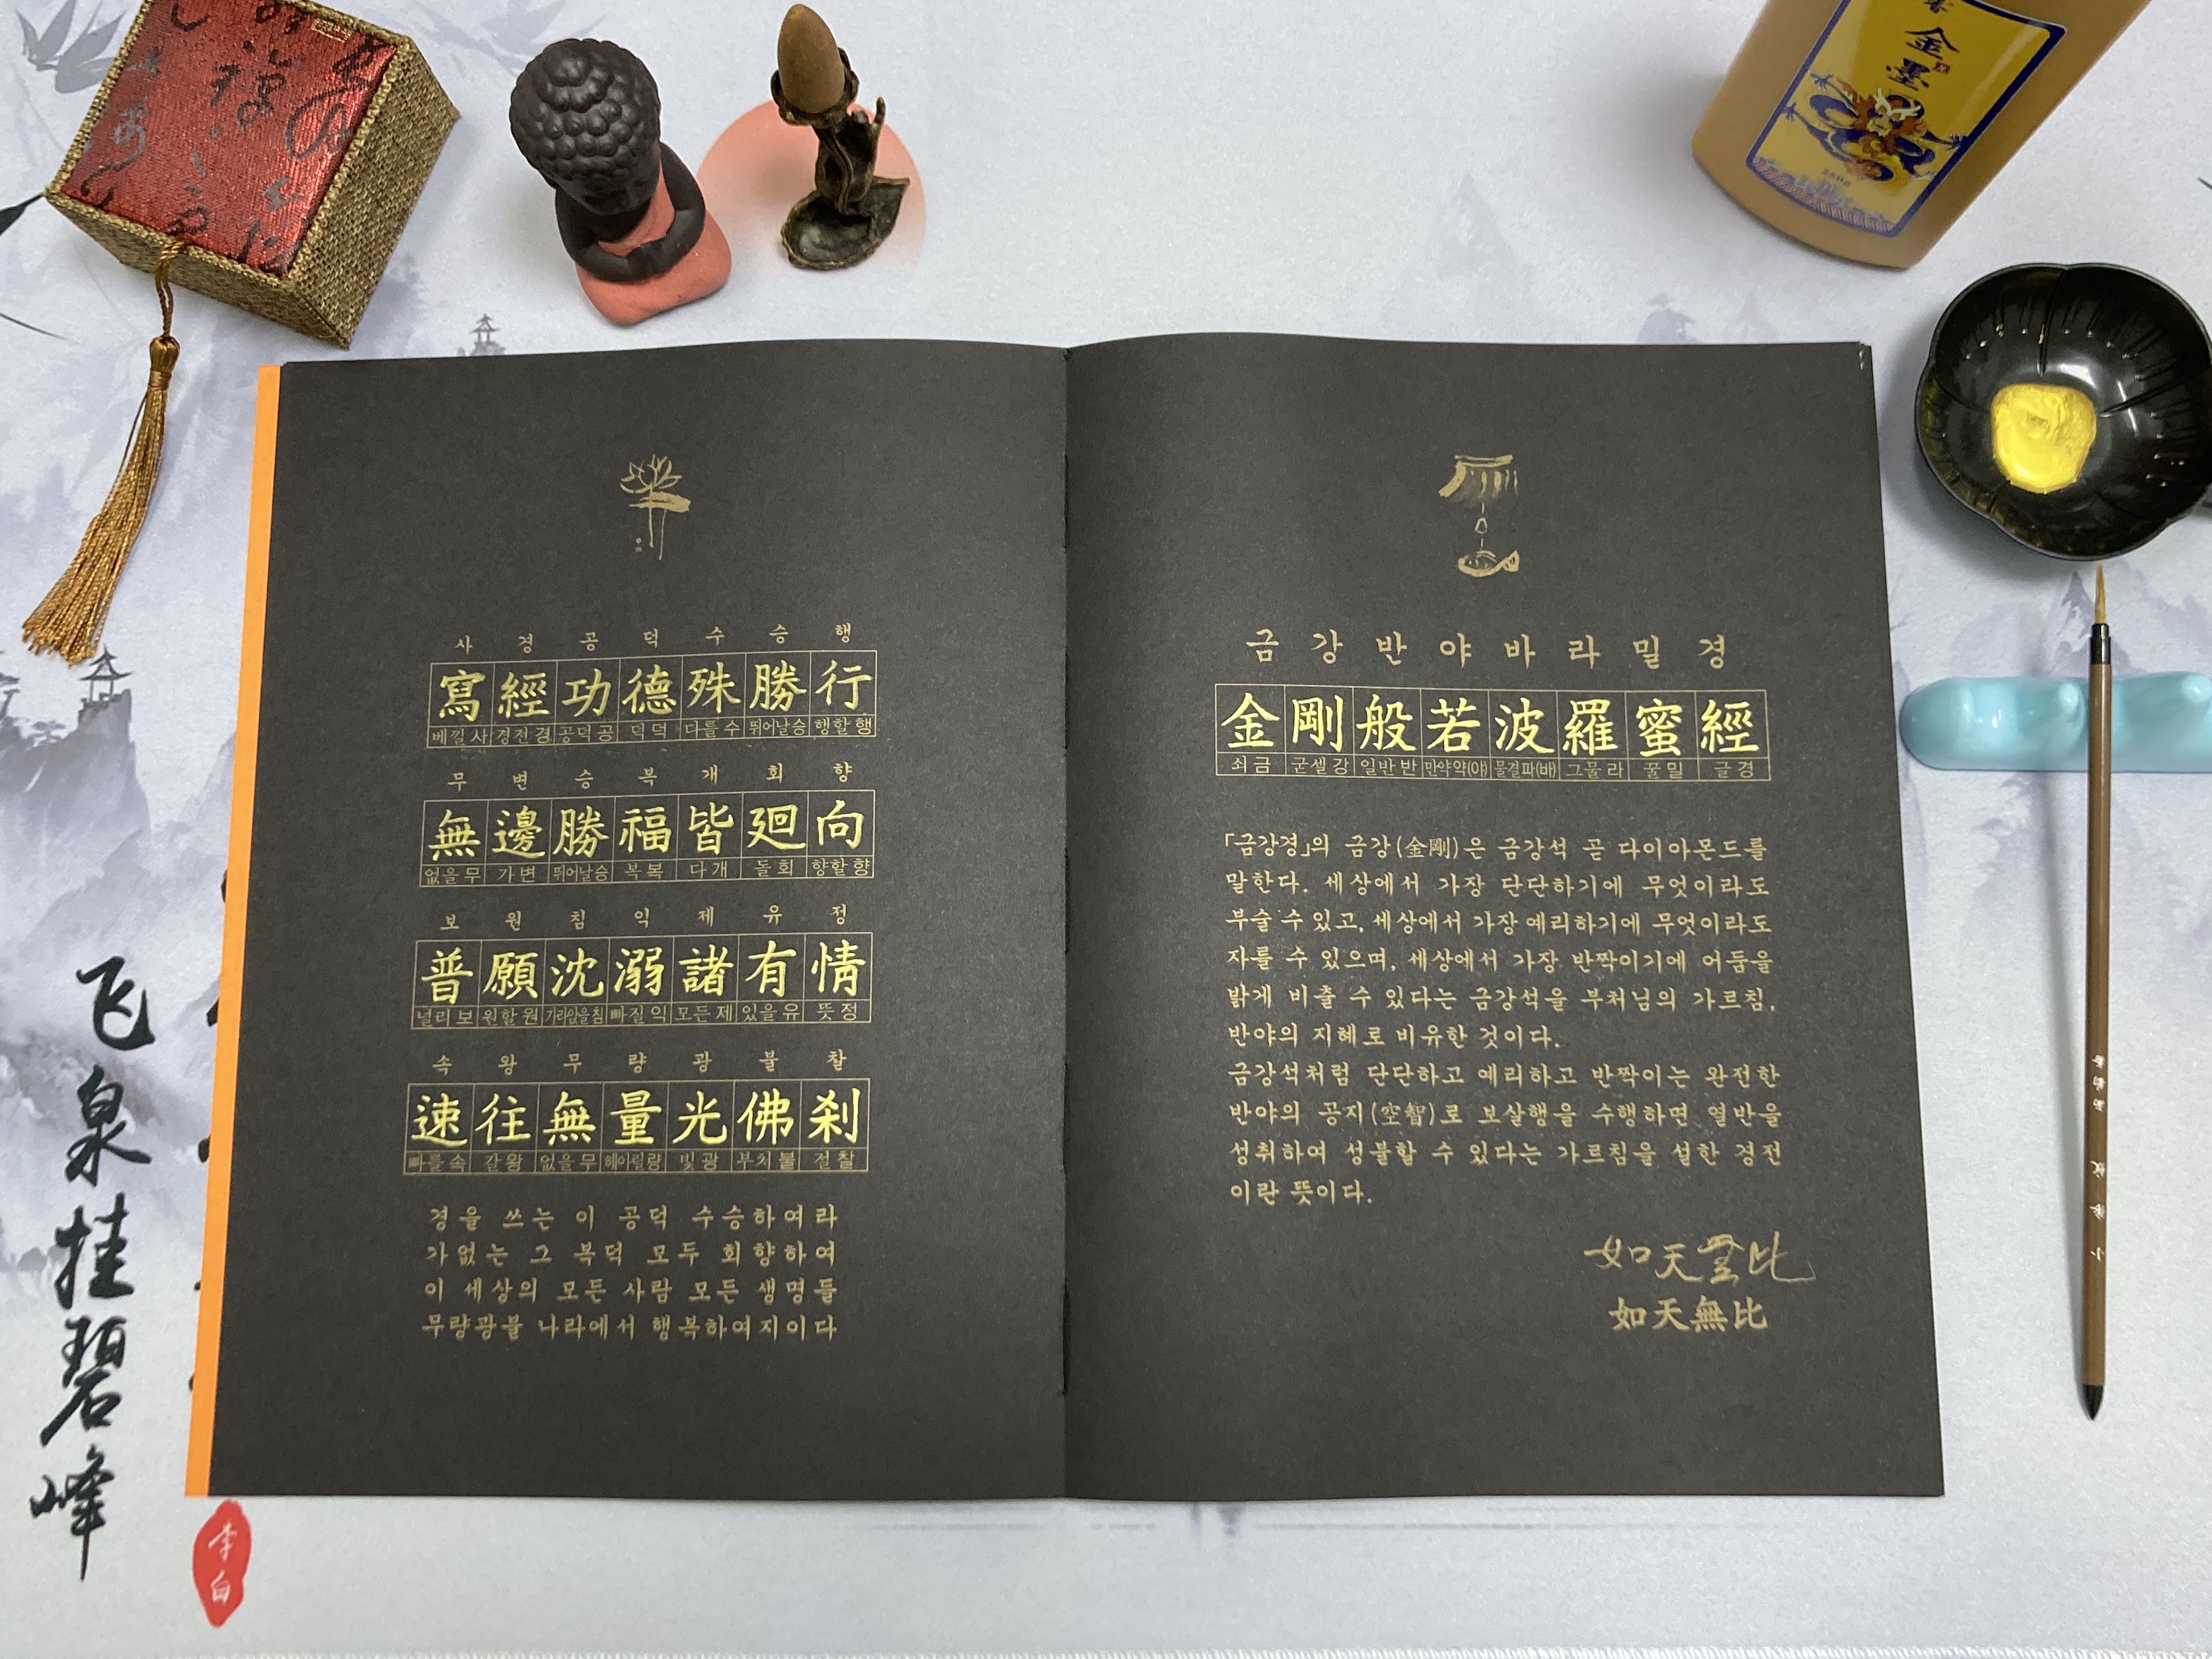 金墨
사 경 공 덕 수 승 행
寫經功德殊勝行
베낄 사 경전 경 공덕 공 덕 덕 다를 수 뛰어날 승 행할 행
무 변 승 복 개 회 향
無邊勝福皆廻向
없을 무 가 변 뛰어날 승 복 복 다 개 돌 회 향할 향
보 원 침 익 제 유 정
普願沈溺諸有情
널리 보 원할 원 가라앉을 침 빠질 익 모든 제 있을 유 뜻 정
속 왕 무 량 광 불 찰
速往無量光佛刹
빠를 속 갈 왕 없을 무 헤아릴 량 빛 광 부처 불 절 찰
경을 쓰는 이 공덕 수승하여라
가없는 그 복덕 모두 회향하여
이 세상의 모든 사람 모든 생명들
무량광불 나라에서 행복하여지이다
금 강 반 야 바 라 밀 경
金剛般若波羅蜜經
쇠 금 굳셀 강 일반 반 만약 약(야) 물결 파(바) 그물 라 꿀 밀 글 경
「금강경」의 금강(金剛)은 금강석 곧 다이아몬드를
말한다. 세상에서 가장 단단하기에 무엇이라도
부술 수 있고, 세상에서 가장 예리하기에 무엇이라도
자를 수 있으며, 세상에서 가장 반짝이기에 어둠을
밝게 비출 수 있다는 금강석을 부처님의 가르침,
반야의 지혜로 비유한 것이다.
금강석처럼 단단하고 예리하고 반짝이는 완전한
반야의 공지(空智)로 보살행을 수행하면 열반을
성취하여 성불할 수 있다는 가르침을 설한 경전
이란 뜻이다.
如天無比
如天無比
飞泉挂碧峰
李白